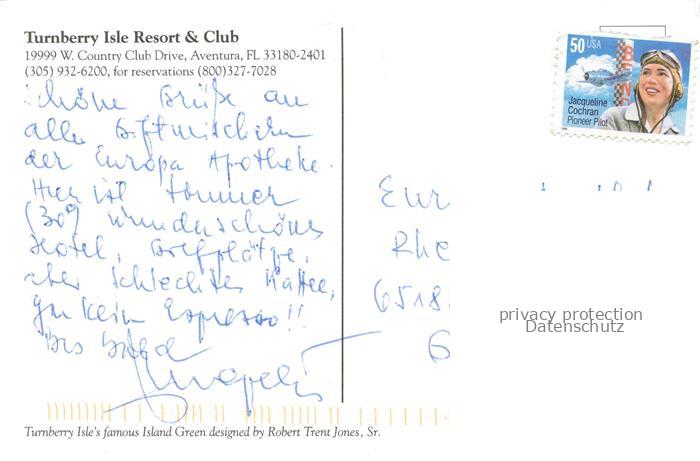 Turnberry Isle Resort & Club
19999 W. Country Club Drive, Aventura, FL 33180-2401
(305) 932-6200, for reservations (800)327-7028
50 USA
Jacqueline
Cochran
Pioneer Pilot
Schöne Grüße an
alle Giftmischern
der Europa Apotheke.
Hier ist Sommer
(30°) wunderschönes
Hotel, Golfplätze,
aber schlechter Kaffee,
gar kein Espresso!!
Bis bald
Eur
Rhe
6518
6
privacy protection
Datenschutz
Turnberry Isle's famous Island Green designed by Robert Trent Jones, Sr.